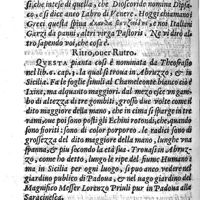 sie, che inciese di quella, che Dioscoride nomina Dipsa-
co, si dice anco Labro di Venere. Hoggi chiamano i
Greci questa spina & noi Italiani
Garzi da panni, altri virga Pastoris. Ne vi dirò al-
tro sapendo voi, che cosa è.
Ritro, ouer Rutro.
QVESTA pianta cosi è nominata da Theofrasto
nel lib. 6. cap. 4. la onde si troua in Abruzzo, & in
Sicilia. Fa le foglie simili al Chameleonte bianco cõ le
spine, ma alquanto maggiori, manda fuora vn gambo
di altezza di tre gombiti, grosso due volte come il
dito maggiore della mano, che in cima si sparge in tre
rami, oue poi sono posti gli Echini rotondi, grossi co-
me noci, di color come porporeo. le radici sono di
grossezza del dito maggiore della mano, lunghe vna
spanna, & piu secondo la età sua. Trouasi in Abruz-
zo, come ho detto, luogo le ripe del fiume Humano
& in Sicilia per ogni luogo, & si può anco vedere nel
giardino publico di Padoua, & nel giardino del
Magnifico Messer Lorenzo Priuli pur in Padoua alla
Saracinesca.